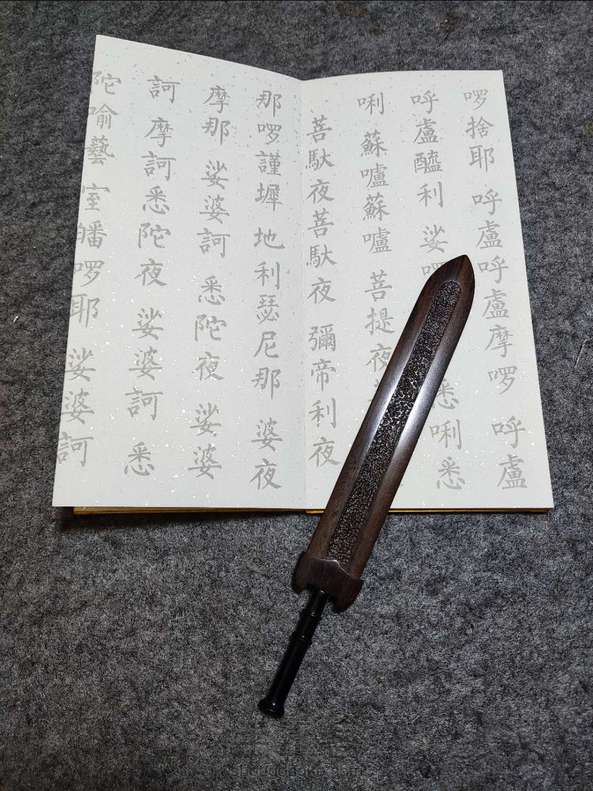 啰捨耶 呼盧呼盧摩啰 呼盧
呼盧醯利 娑 悉唎悉
唎 蘇嚧蘇嚧 菩提夜
菩馱夜菩馱夜 彌帝利夜
那啰謹墀 地利瑟尼那 婆夜
摩那 娑婆訶 悉陀夜 娑婆
訶 摩訶悉陀夜 娑婆訶 悉
陀喻藝 室皤啰耶 娑婆訶